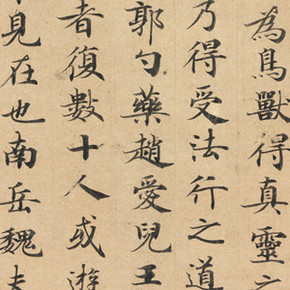 為鳥獸得真靈之
乃得受法行之道
郭勺藥趙愛兒王
者復數十人或遊
見在也南岳魏夫